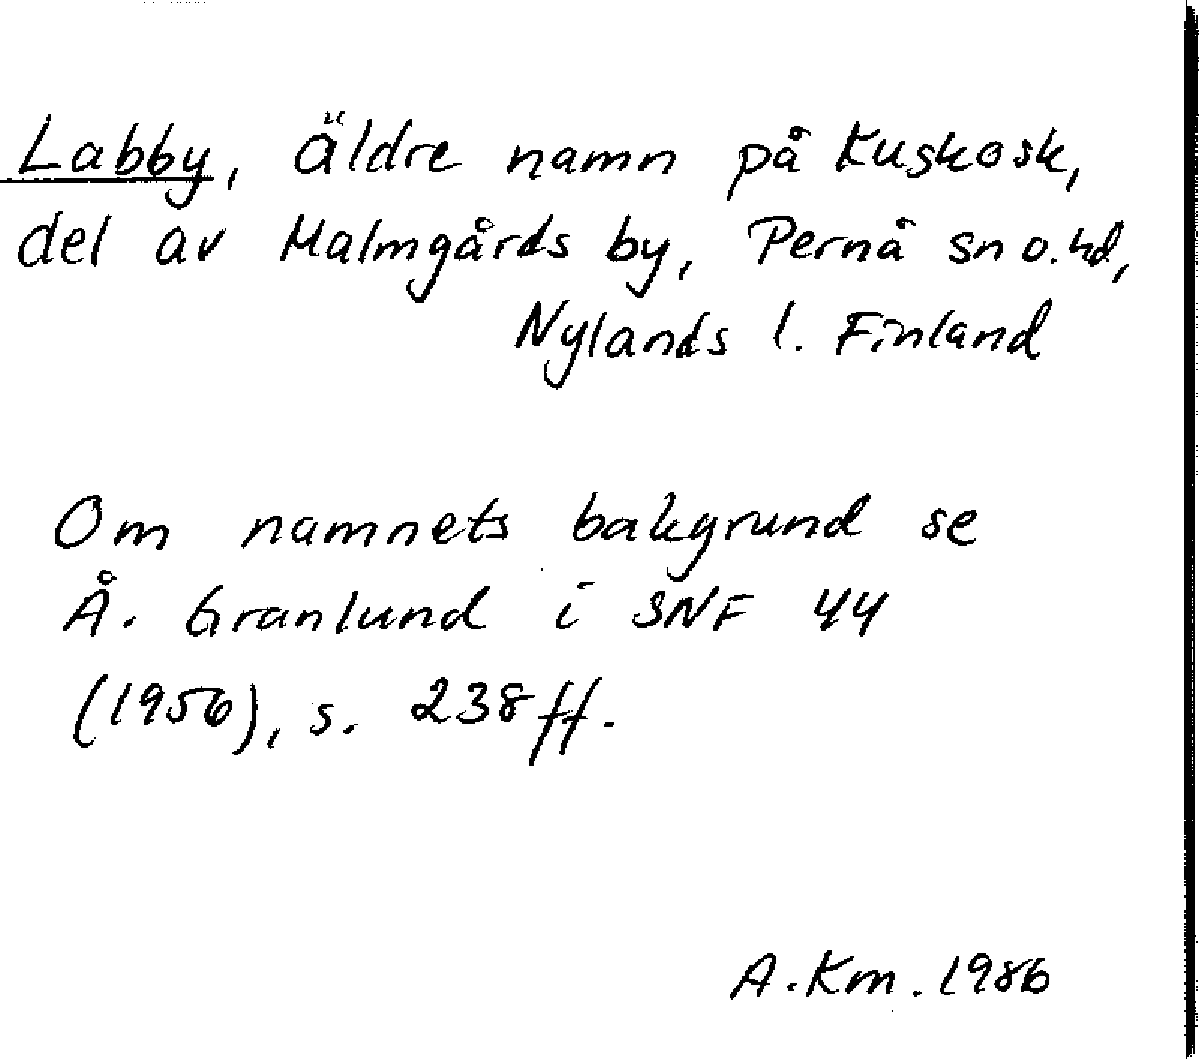 Labby, äldre namn på Kuskosk,
del av Malmgårds by, Pernå sn o. hd,
Nylands l. Finland
Om namnets bakgrund se
Å. Granlund i SNF 44
(1956), s. 238 ff.
A. Km. 1986